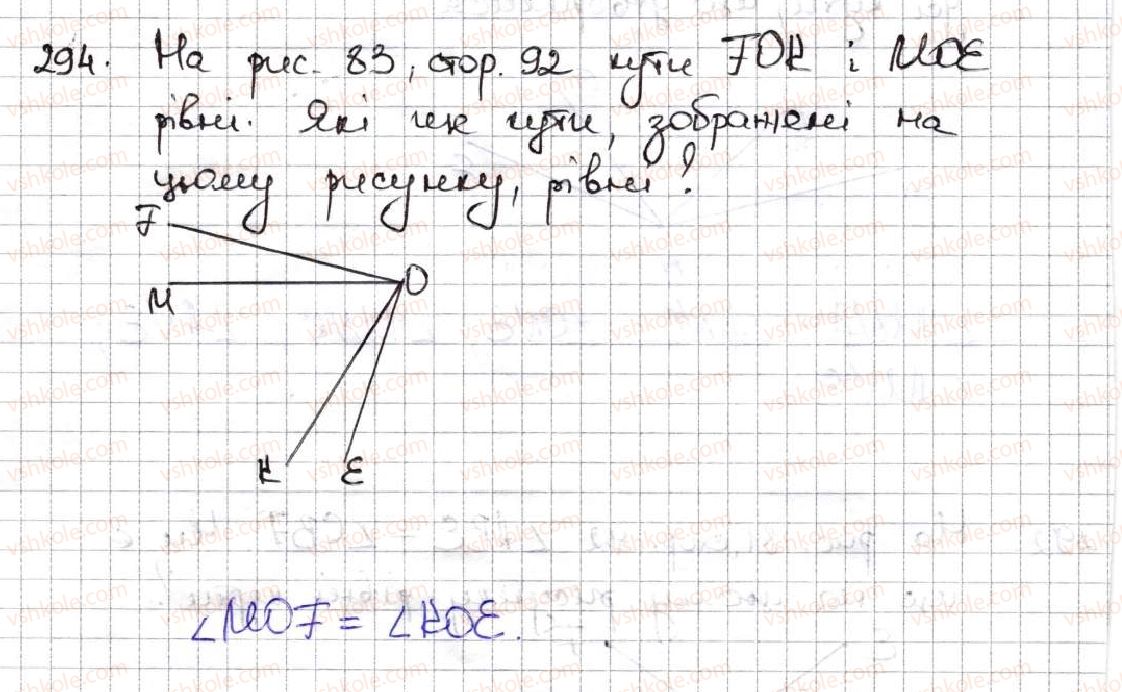 294. На рис. 83, стор. 92 кути FOK і MOE
рівні. Які ще кути, зображені на
цьому рисунку, рівні?
F
M
O
K
E
∠MOF = ∠KOE.